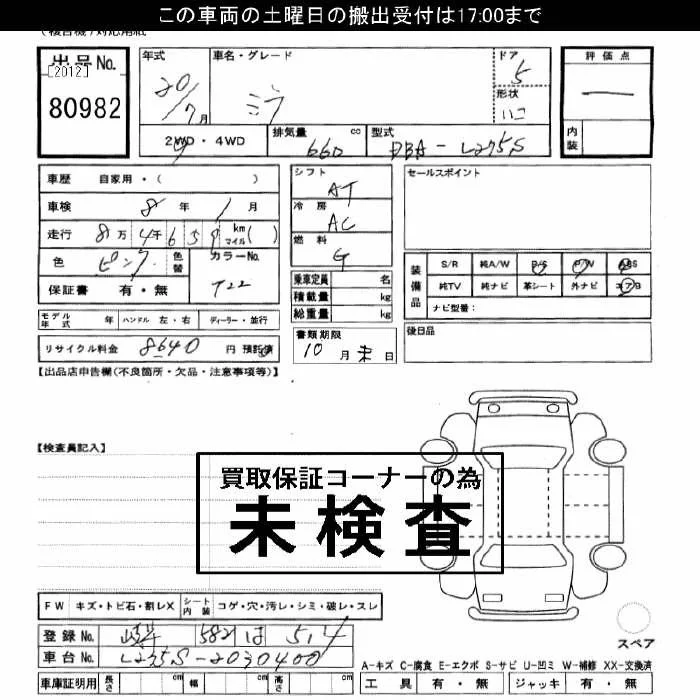 この車両の土曜日の搬出受付は17:00まで
出品No.
[2012]
80982
年式
20/7月
車名・グレード
ミラ
ドア
5
形状
ハコ
評価点
内装
2WD・4WD
排気量
660 cc
型式
DBA-L275S
車歴 自家用・( )
車検 8年 1月
走行 8万4千659 km マイル( )
色 ピンク 色替
カラーNo.
T22
保証書 有・無
シフト
AT
冷房
AC
燃料
G
乗車定員 名
積載量 kg
総重量 kg
セールスポイント
装備品
S/R 純A/W P/S P/W ABS
純TV 純ナビ 革シート 外ナビ エアB
ナビ型量:
モデル年式 年 ハンドル 左・右 ディーラー・並行
リサイクル料金 8640 円 預託済
書類期限
10月末日
後日品
【出品店申告欄(不良箇所・欠品・注意事項等)】
【検査員記入】
買取保証コーナーの為
未検査
FW キズ・トビ石・割レX シート内装 コゲ・穴・汚レ・シミ・破レ・スレ
登録No. 582 は 514
車台No. L275S-2030400
スペア
A-キズ C-腐食 E-エクボ S-サビ U-凹ミ W-補修 XX-交換済
車庫証明用 長さ cm 幅 cm 高さ cm
工具 有・無 ジャッキ 有・無